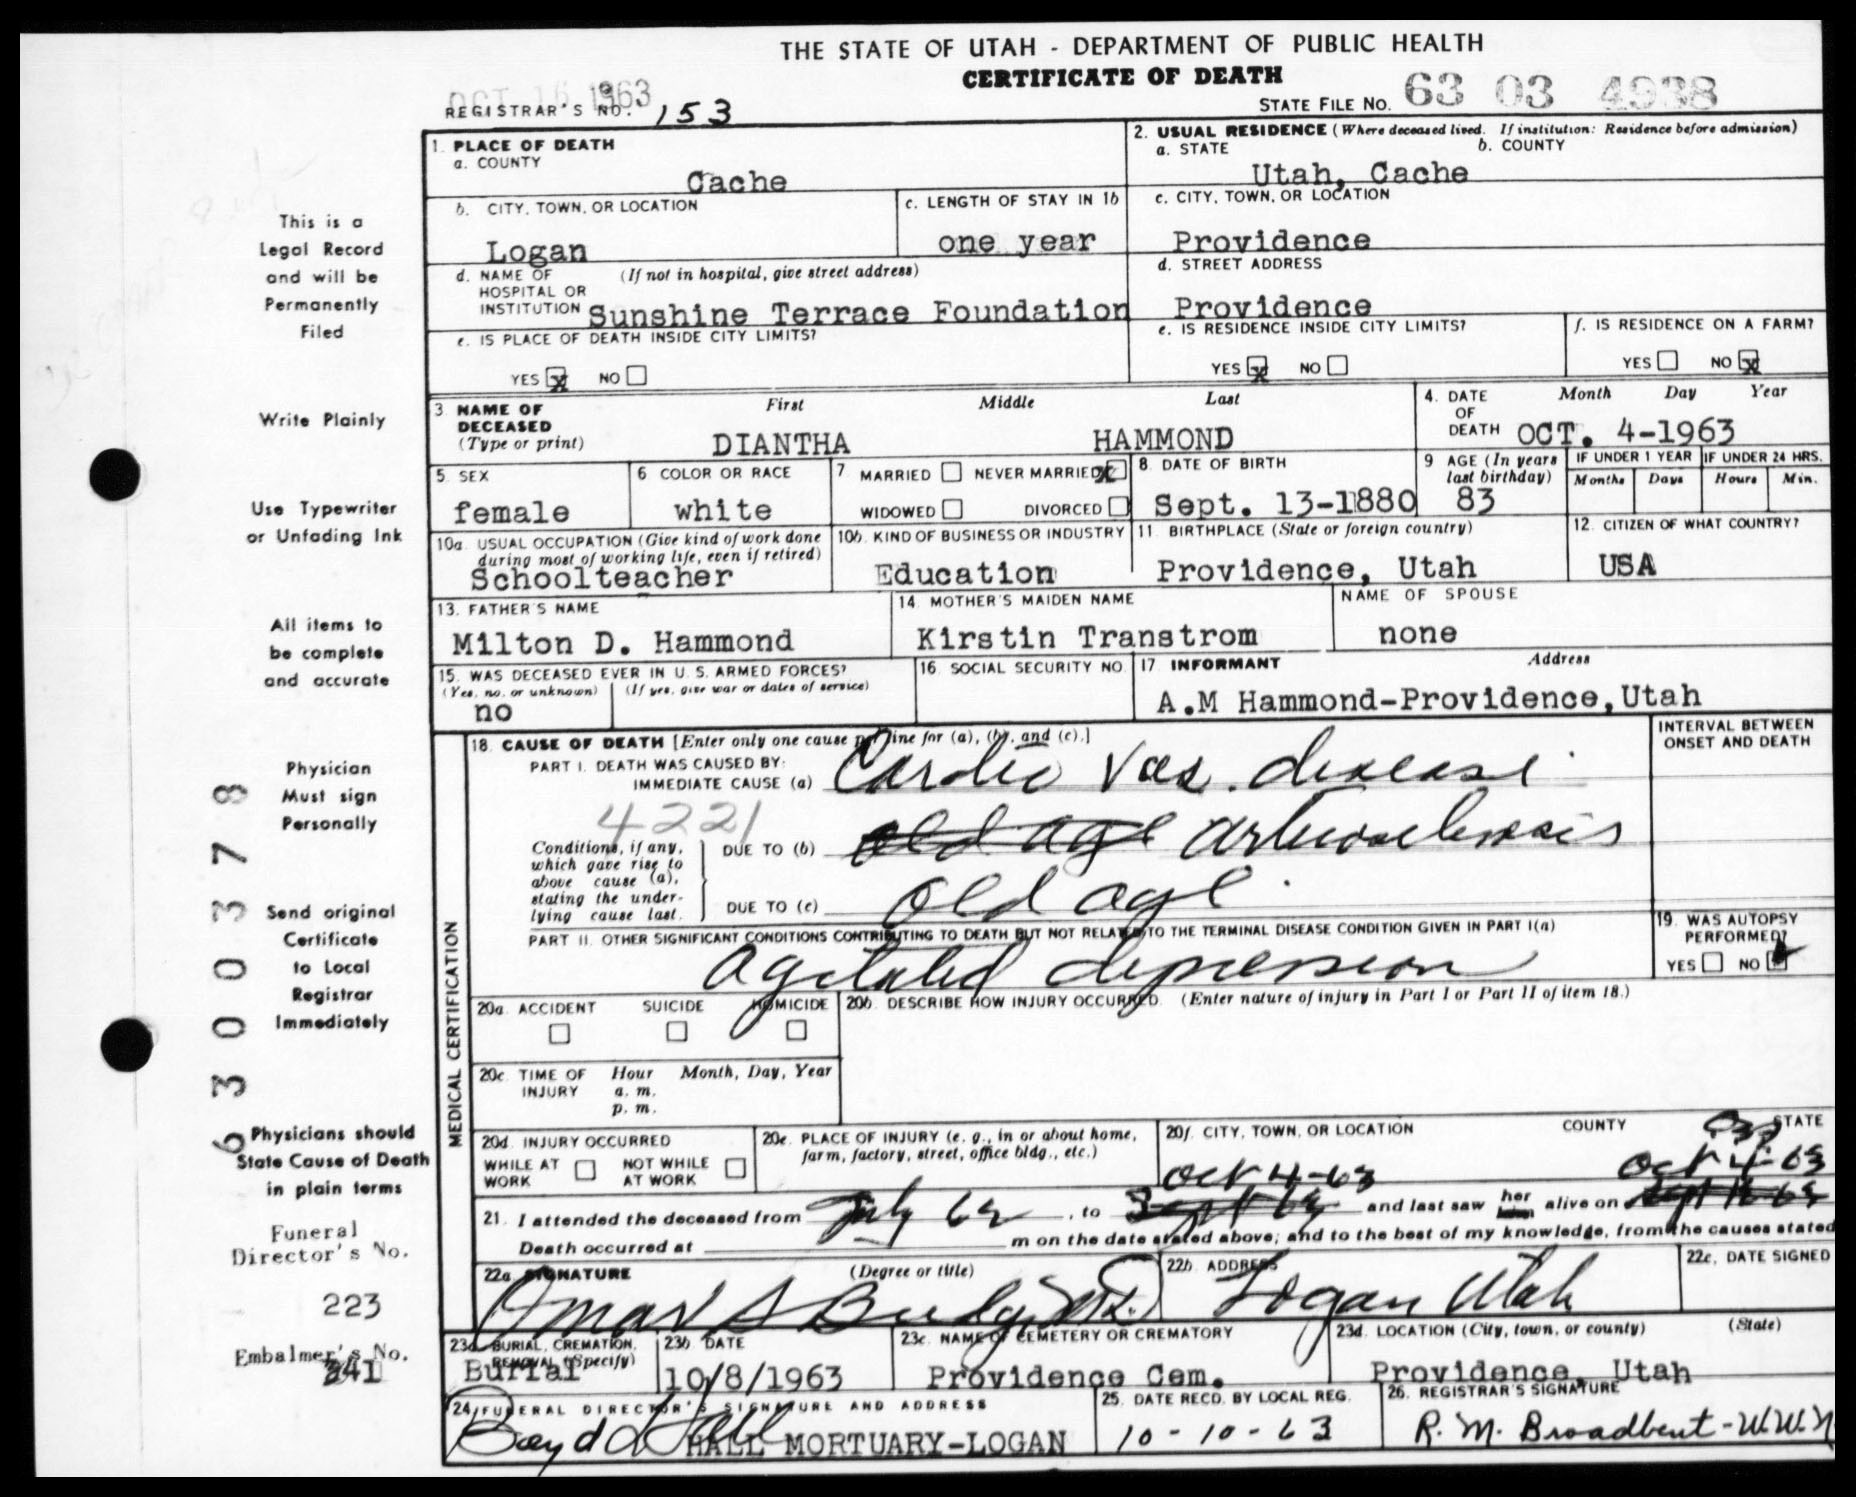 THE STATE OF UTAH - DEPARTMENT OF PUBLIC HEALTH
CERTIFICATE OF DEATH
OCT 16 1963
REGISTRAR'S NO. 153
STATE FILE NO. 63 03 4938
This is a
Legal Record
and will be
Permanently
Filed
Write Plainly
Use Typewriter
or Unfading Ink
All items to
be complete
and accurate
Physician
Must sign
Personally
Send original
Certificate
to Local
Registrar
Immediately
Physicians should
State Cause of Death
in plain terms
Funeral
Director's No.
223
Embalmer's No.
341
6300378
1. PLACE OF DEATH
a. COUNTY
Cache
2. USUAL RESIDENCE (Where deceased lived. If institution: Residence before admission)
a. STATE b. COUNTY
Utah, Cache
b. CITY, TOWN, OR LOCATION
Logan
c. LENGTH OF STAY IN 1b
one year
c. CITY, TOWN, OR LOCATION
Providence
d. NAME OF (If not in hospital, give street address)
HOSPITAL OR
INSTITUTION Sunshine Terrace Foundation
d. STREET ADDRESS
Providence
e. IS PLACE OF DEATH INSIDE CITY LIMITS?
YES X NO
e. IS RESIDENCE INSIDE CITY LIMITS?
YES X NO
f. IS RESIDENCE ON A FARM?
YES NO X
3. NAME OF DECEASED (Type or print)
First Middle Last
DIANTHA HAMMOND
4. DATE OF DEATH
Month Day Year
OCT. 4-1963
5. SEX
female
6 COLOR OR RACE
white
7 MARRIED NEVER MARRIED X
WIDOWED DIVORCED
8. DATE OF BIRTH
Sept. 13-1880
9 AGE (In years last birthday)
83
IF UNDER 1 YEAR IF UNDER 24 HRS.
Months Days Hours Min.
10a. USUAL OCCUPATION (Give kind of work done
during most of working life, even if retired)
Schoolteacher
10b. KIND OF BUSINESS OR INDUSTRY
Education
11. BIRTHPLACE (State or foreign country)
Providence, Utah
12. CITIZEN OF WHAT COUNTRY?
USA
13. FATHER'S NAME
Milton D. Hammond
14. MOTHER'S MAIDEN NAME
Kirstin Transtrom
NAME OF SPOUSE
none
15. WAS DECEASED EVER IN U. S. ARMED FORCES?
(Yes, no, or unknown) (If yes, give war or dates of service)
no
16. SOCIAL SECURITY NO.
17. INFORMANT Address
A.M Hammond-Providence,Utah
MEDICAL CERTIFICATION
18. CAUSE OF DEATH [Enter only one cause per line for (a), (b), and (c).]
INTERVAL BETWEEN
ONSET AND DEATH
PART I. DEATH WAS CAUSED BY:
IMMEDIATE CAUSE (a) Cardio Vas. disease
4221
Conditions, if any,
which gave rise to
above cause (a),
stating the under-
lying cause last.
DUE TO (b) old age arteriosclerosis
DUE TO (c) old age
PART II. OTHER SIGNIFICANT CONDITIONS CONTRIBUTING TO DEATH BUT NOT RELATED TO THE TERMINAL DISEASE CONDITION GIVEN IN PART I(a)
Agitated depression
19. WAS AUTOPSY
PERFORMED?
YES NO
20a. ACCIDENT SUICIDE HOMICIDE
20b. DESCRIBE HOW INJURY OCCURRED. (Enter nature of injury in Part I or Part II of item 18.)
20c. TIME OF INJURY Hour Month, Day, Year
a. m.
p. m.
20d. INJURY OCCURRED
WHILE AT WORK NOT WHILE AT WORK
20e. PLACE OF INJURY (e. g., in or about home,
farm, factory, street, office bldg., etc.)
20f. CITY, TOWN, OR LOCATION COUNTY STATE
Oct 4-63 Oct 4-63
21. I attended the deceased from July 62, to Sept 63 and last saw her him alive on Sept 16-63
Death occurred at m on the date stated above; and to the best of my knowledge, from the causes stated
22a. SIGNATURE (Degree or title)
Omar S Budge M.D.
22b. ADDRESS
Logan Utah
22c. DATE SIGNED
23a. BURIAL, CREMATION, REMOVAL (Specify)
Burial
23b. DATE
10/8/1963
23c. NAME OF CEMETERY OR CREMATORY
Providence Cem.
23d. LOCATION (City, town, or county) (State)
Providence, Utah
24. FUNERAL DIRECTOR'S SIGNATURE AND ADDRESS
Boyd L Hall HALL MORTUARY-LOGAN
25. DATE RECD. BY LOCAL REG.
10-10-63
26. REGISTRAR'S SIGNATURE
R. M. Broadbent-W.W.N